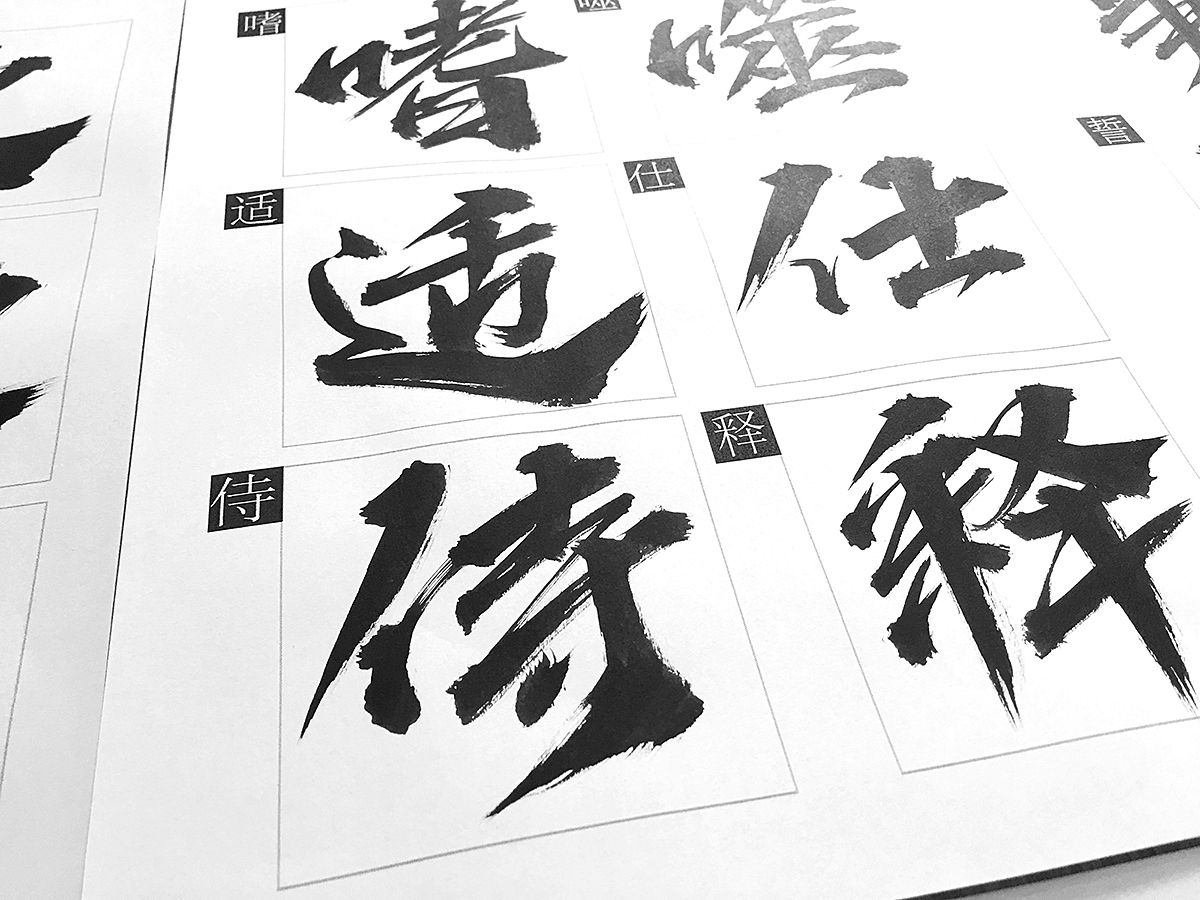 嗜 嗜 噬 噬
适 适 仕 仕 誓
侍 侍 释 释